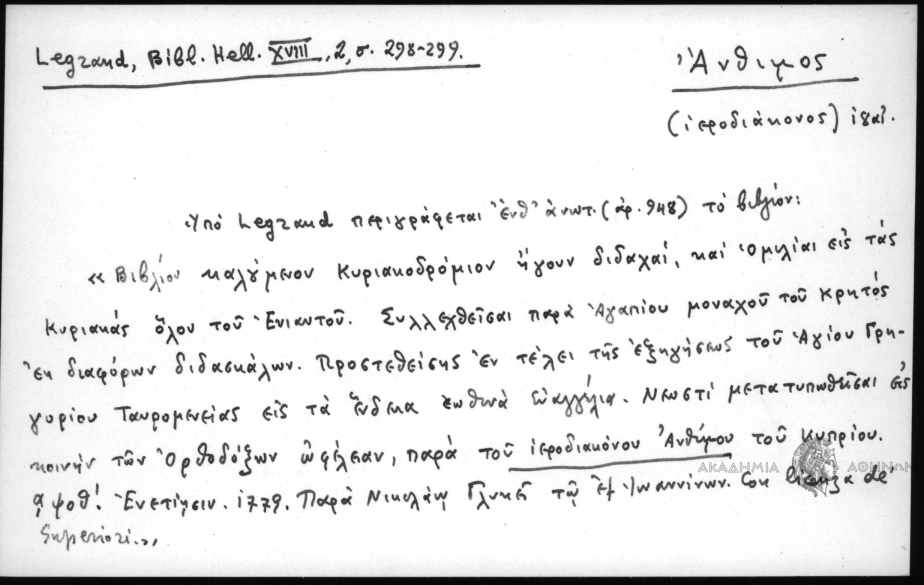 Legrand, Bibl. Hell. XVIII, 2, σ. 298-299.
Ἄνθιμος
(ἱεροδιάκονος) ιηαι.
Ὑπό Legrand περιγράφεται ἐνθ' ἀνωτ. (ἀρ. 948) τό βιβλίον:
« Βιβλίον καλούμενον Κυριακοδρόμιον ἤγουν διδαχαί, καί Ὁμιλίαι εἰς τάς
Κυριακάς ὅλου τοῦ Ἐνιαυτοῦ. Συλλεχθεῖσαι παρά Ἀγαπίου μοναχοῦ τοῦ Κρητός
Ἐκ διαφόρων διδασκάλων. Προστεθείσης ἐν τέλει τῆς ἐξηγήσεως τοῦ Ἁγίου Γρη-
γορίου Ταυρομενείας εἰς τά ἕνδεκα ἑωθινά Εὐαγγέλια. Νεωστί μετατυπωθεῖσαι εἰς
κοινήν τῶν Ὀρθοδόξων ὠφέλειαν, παρά τοῦ ἱεροδιακόνου Ἀνθίμου τοῦ Κυπρίου.
͵αψοθ! Ἐνετίησιν. 1779. Παρά Νικολάῳ Γλυκεῖ τῷ ἐξ Ἰωαννίνων. Con licenza de
Superiori.,,
ΑΚΑΔΗΜΙΑ ΑΘΗΝΩΝ